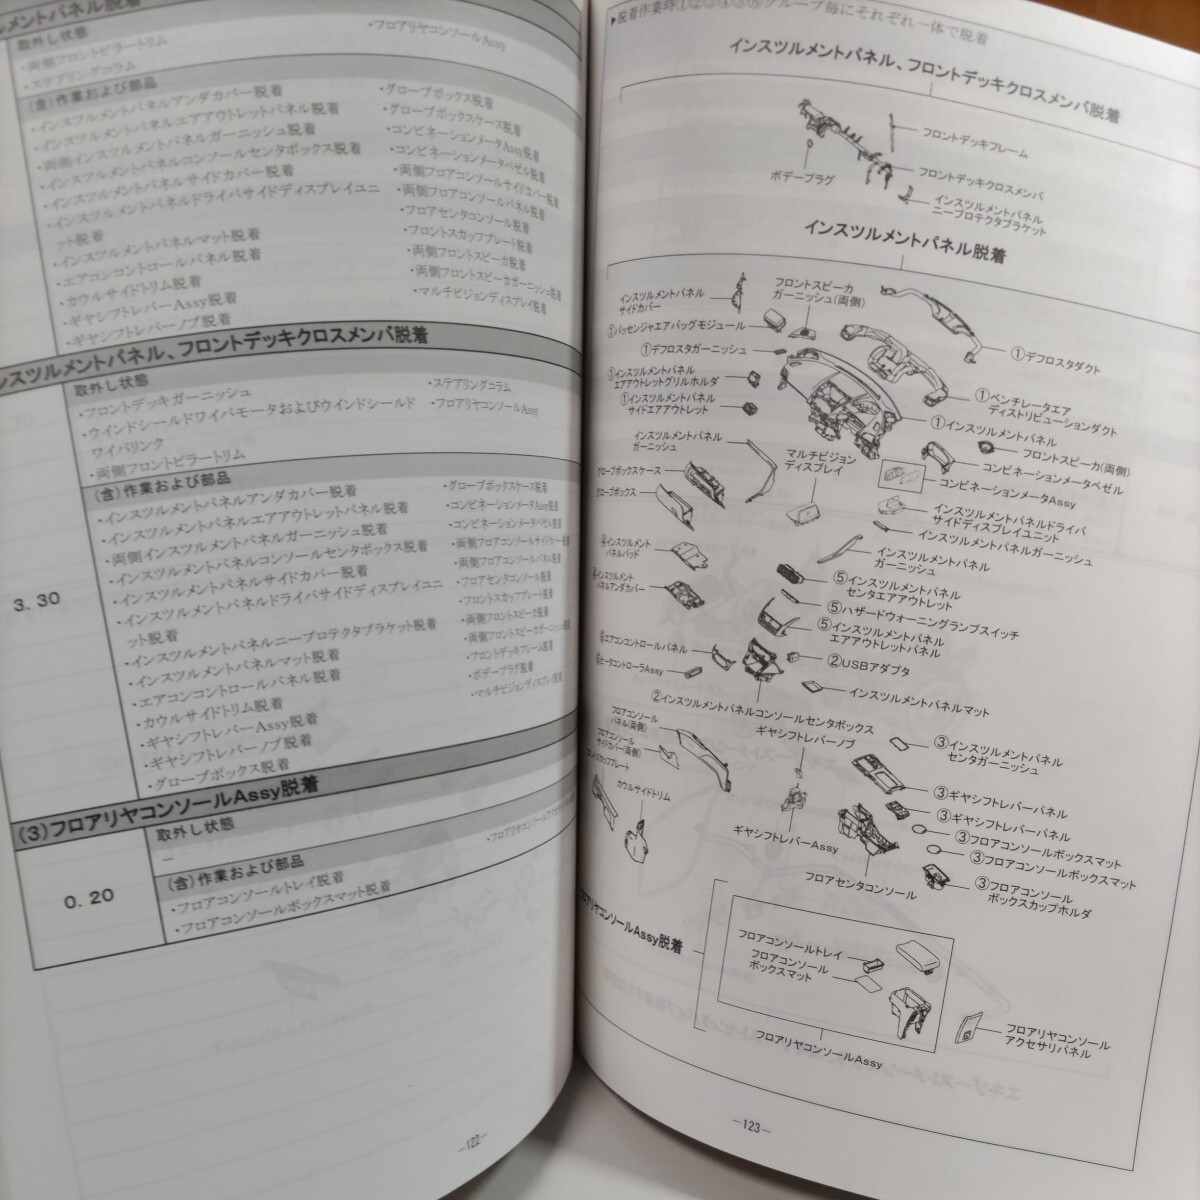 ルメントパネル脱着
取外し状態
・両側フロントピラートリム
・ステアリングコラム
・フロアリヤコンソールAssy
(含)作業および部品
・インスツルメントパネルアンダカバー脱着
・インスツルメントパネルエアアウトレットパネル脱着
・両側インスツルメントパネルガーニッシュ脱着
・インスツルメントパネルコンソールセンタボックス脱着
・インスツルメントパネルサイドカバー脱着
・インスツルメントパネルドライバサイドディスプレイユニ
ット脱着
・インスツルメントパネルマット脱着
・エアコンコントロールパネル脱着
・カウルサイドトリム脱着
・ギヤシフトレバーAssy脱着
・ギヤシフトレバーノブ脱着
・グローブボックス脱着
・グローブボックスケース脱着
・コンビネーションメータAssy脱着
・コンビネーションメータベゼル脱着
・両側フロアコンソールサイドカバー脱着
・両側フロアコンソールパネル脱着
・フロアセンタコンソール脱着
・フロントスカッフプレート脱着
・両側フロントスピーカ脱着
・両側フロントスピーカガーニッシュ脱着
・マルチビジョンディスプレイ脱着
ンスツルメントパネル、フロントデッキクロスメンバ脱着
3.30
取外し状態
・フロントデッキガーニッシュ
・ウインドシールドワイパモータおよびウインドシールド
ワイパリンク
・両側フロントピラートリム
・ステアリングコラム
・フロアリヤコンソールAssy
(含)作業および部品
・インスツルメントパネルアンダカバー脱着
・インスツルメントパネルエアアウトレットパネル脱着
・両側インスツルメントパネルガーニッシュ脱着
・インスツルメントパネルコンソールセンタボックス脱着
・インスツルメントパネルサイドカバー脱着
・インスツルメントパネルドライバサイドディスプレイユニ
ット脱着
・インスツルメントパネルニープロテクタブラケット脱着
・インスツルメントパネルマット脱着
・エアコンコントロールパネル脱着
・カウルサイドトリム脱着
・ギヤシフトレバーAssy脱着
・ギヤシフトレバーノブ脱着
・グローブボックス脱着
・グローブボックスケース脱着
・コンビネーションメータAssy脱着
・コンビネーションメータベゼル脱着
・両側フロアコンソールサイドカバー脱着
・両側フロアコンソールパネル脱着
・フロアセンタコンソール脱着
・フロントスカッフプレート脱着
・両側フロントスピーカ脱着
・両側フロントスピーカガーニッシュ脱着
・フロントデッキフレーム脱着
・ボデープラグ脱着
・マルチビジョンディスプレイ脱着
(3)フロアリヤコンソールAssy脱着
0.20
取外し状態
―
(含)作業および部品
・フロアコンソールトレイ脱着
・フロアコンソールボックスマット脱着
―122―
▶脱着作業時①②③④⑤⑥グループ毎にそれぞれ一体で脱着
インスツルメントパネル、フロントデッキクロスメンバ脱着
フロントデッキフレーム
フロントデッキクロスメンバ
ボデープラグ
インスツルメントパネル
ニープロテクタブラケット
インスツルメントパネル脱着
インスツルメントパネル
サイドカバー
フロントスピーカ
ガーニッシュ(両側)
①パッセンジャエアバッグモジュール
①デフロスタガーニッシュ
①デフロスタダクト
①インスツルメントパネル
エアアウトレットグリルホルダ
①インスツルメントパネル
サイドエアアウトレット
①ベンチレータエア
ディストリビューションダクト
①インスツルメントパネル
フロントスピーカ(両側)
インスツルメントパネル
ガーニッシュ
マルチビジョン
ディスプレイ
コンビネーションメータベゼル
コンビネーションメータAssy
グローブボックスケース
グローブボックス
インスツルメントパネルドライバ
サイドディスプレイユニット
インスツルメントパネルガーニッシュ
④インスツルメント
パネルパッド
インスツルメントパネル
ガーニッシュ
④インスツルメント
パネルアンダカバー
⑤インスツルメントパネル
センタエアアウトレット
⑤ハザードウォーニングランプスイッチ
⑤インスツルメントパネル
エアアウトレットパネル
⑥エアコンコントロールパネル
②USBアダプタ
⑥ヒータコントローラAssy
インスツルメントパネルマット
②インスツルメントパネルコンソールセンタボックス
フロアコンソール
パネル(両側)
ギヤシフトレバーノブ
③インスツルメントパネル
センタガーニッシュ
フロアコンソール
サイドカバー(両側)
カウルサイドトリム
③ギヤシフトレバーパネル
③ギヤシフトレバーパネル
③フロアコンソールボックスマット
③フロアコンソールボックスマット
ギヤシフトレバーAssy
フロアセンタコンソール
③フロアコンソール
ボックスカップホルダ
フロアリヤコンソールAssy脱着
フロアコンソールトレイ
フロアコンソール
ボックスマット
フロアリヤコンソールAssy
フロアリヤコンソール
アクセサリパネル
―123―